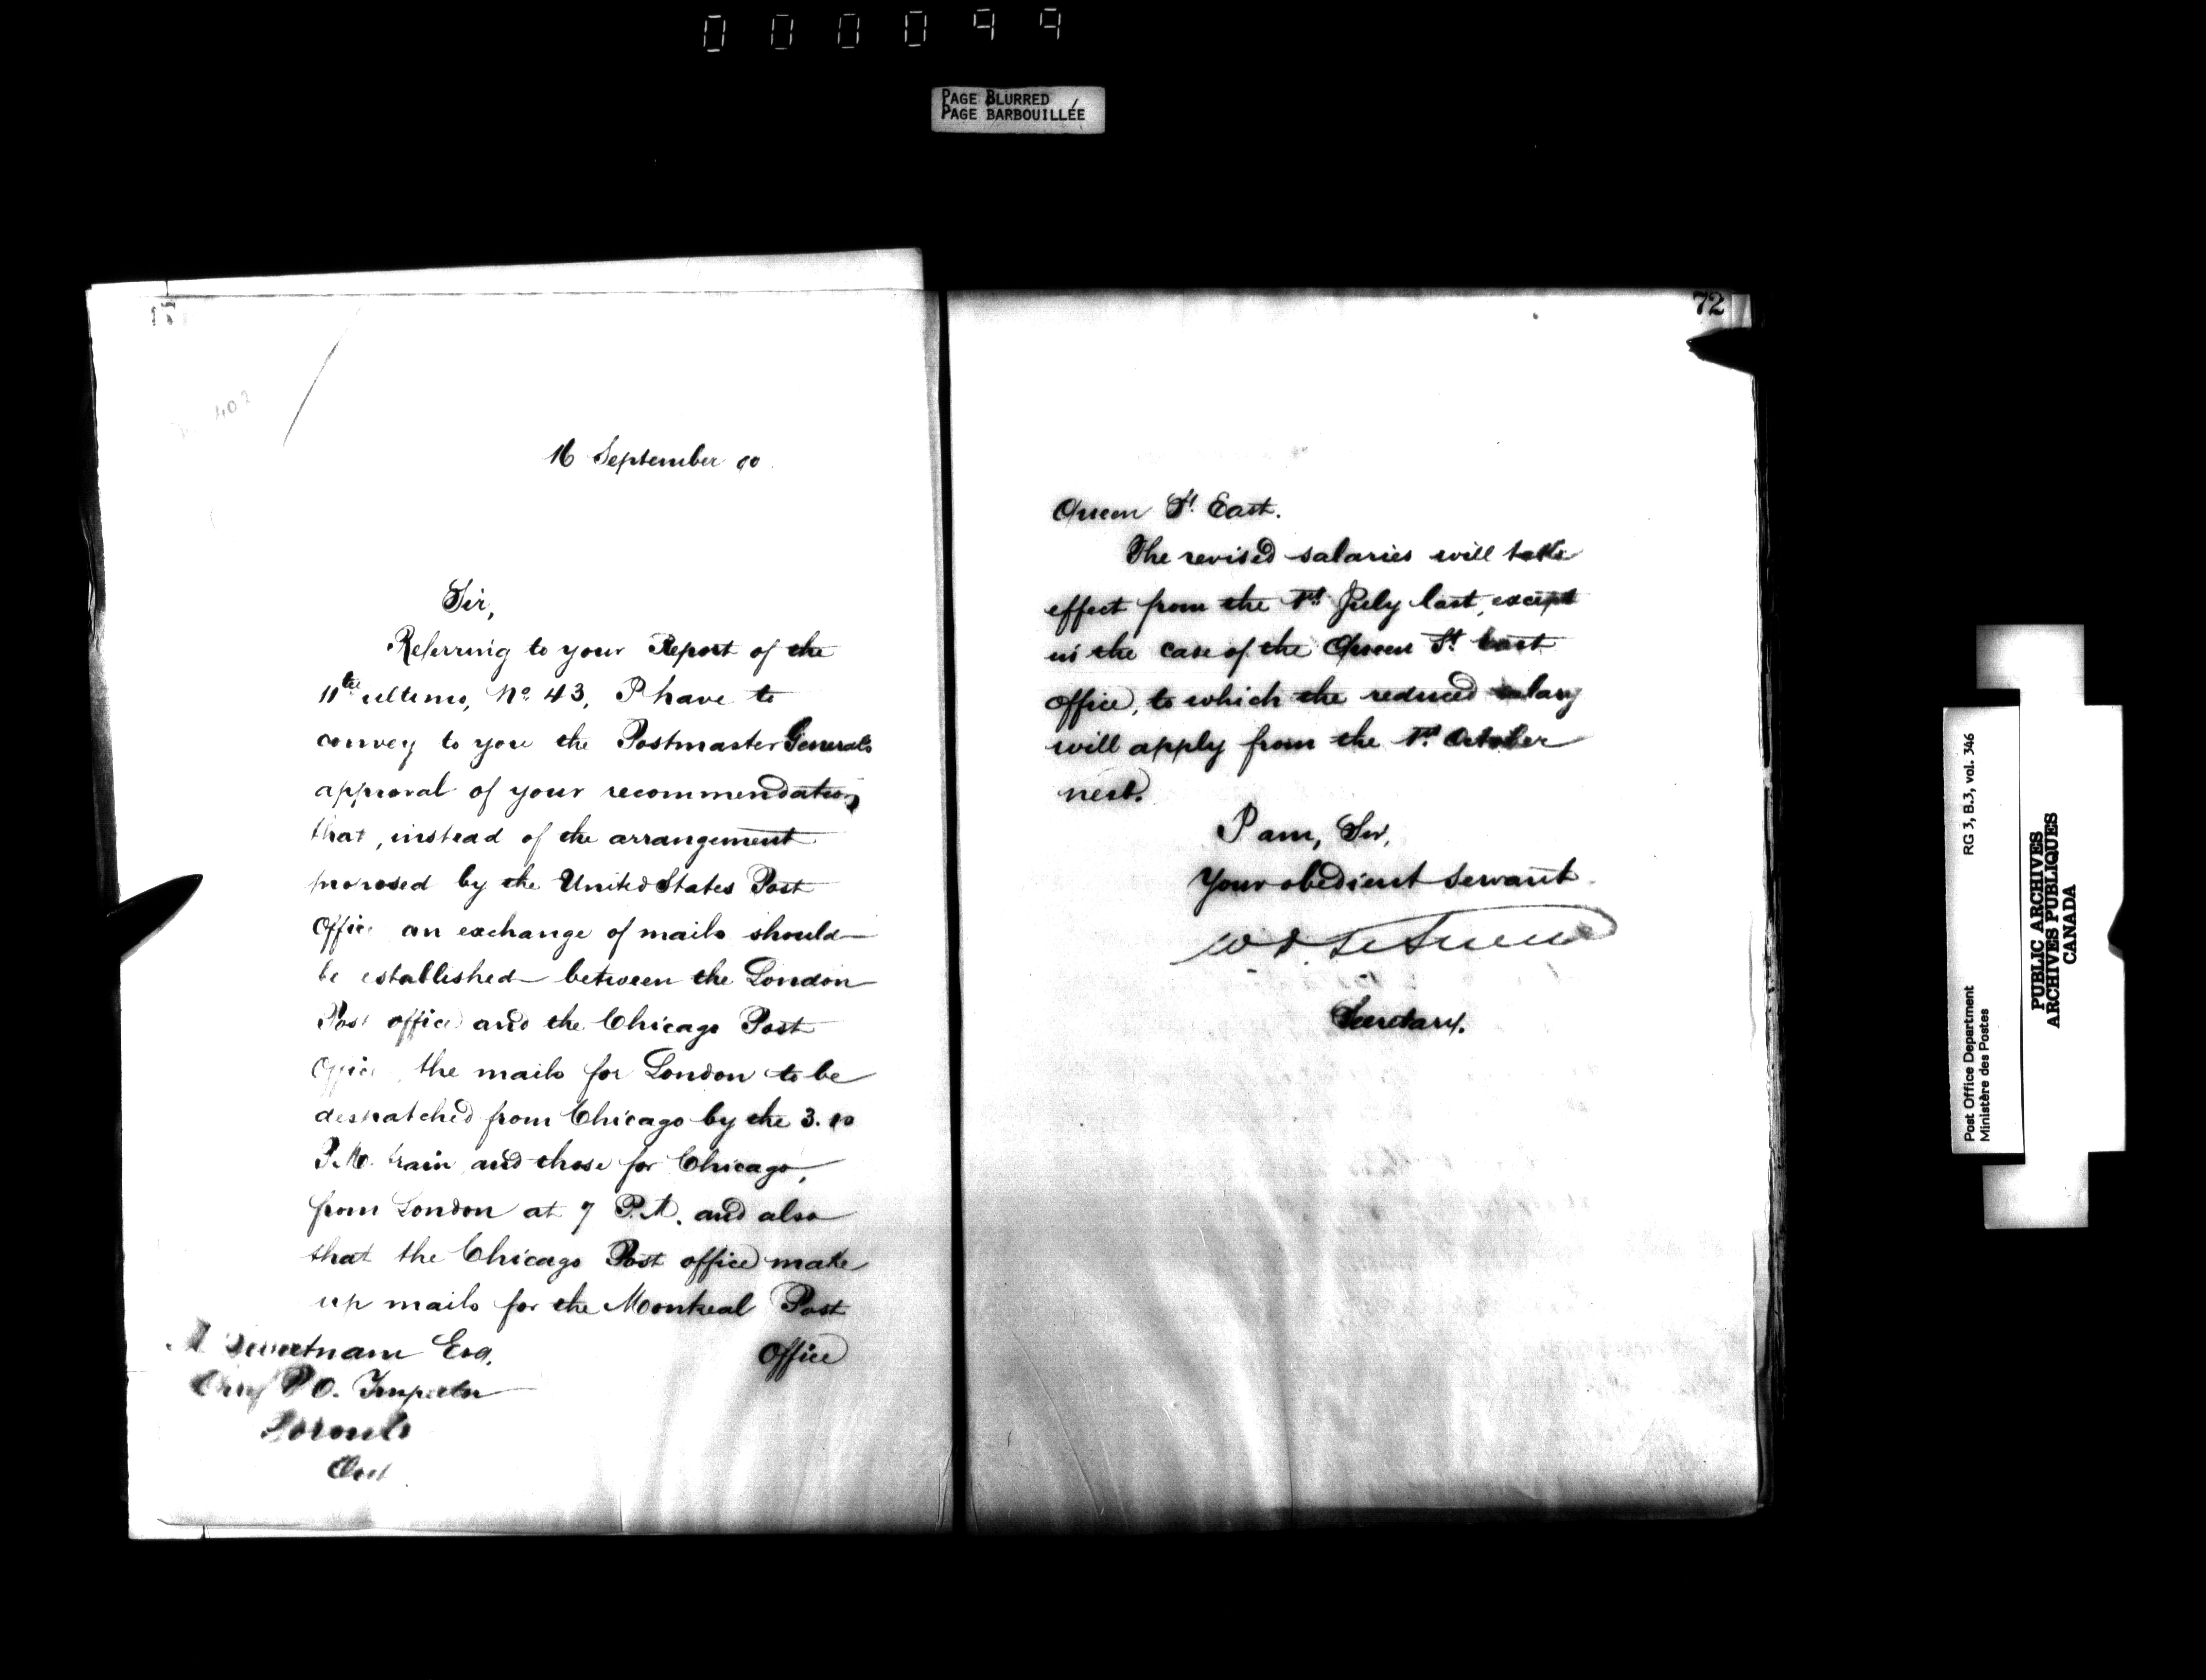 000099
PAGE BLURRED
PAGE BARBOUILLÉE
402
16 September 90
Sir,
Referring to your Report of the
11th ultimo, No. 43, I have to
convey to you the Postmaster General's
approval of your recommendation
that, instead of the arrangement
proposed by the United States Post
Office an exchange of mails should
be established between the London
Post office and the Chicago Post
Office, the mails for London to be
despatched from Chicago by the 3.10
P.M. train and those for Chicago,
from London at 7 P.M. and also
that the Chicago Post office make
up mails for the Montreal Post
Office
M Sweetnam Esq.
Chief P.O. Inspector
Toronto
Ont
72
Queen St. East.
The revised salaries will take
effect from the 1st July last, except
in the case of the Queen St. East
Office, to which the reduced salary
will apply from the 1st October
next.
I am, Sir,
Your obedient servant
Secretary.
RG 3, B.3, vol. 346
Post Office Department
Ministère des Postes
PUBLIC ARCHIVES
ARCHIVES PUBLIQUES
CANADA